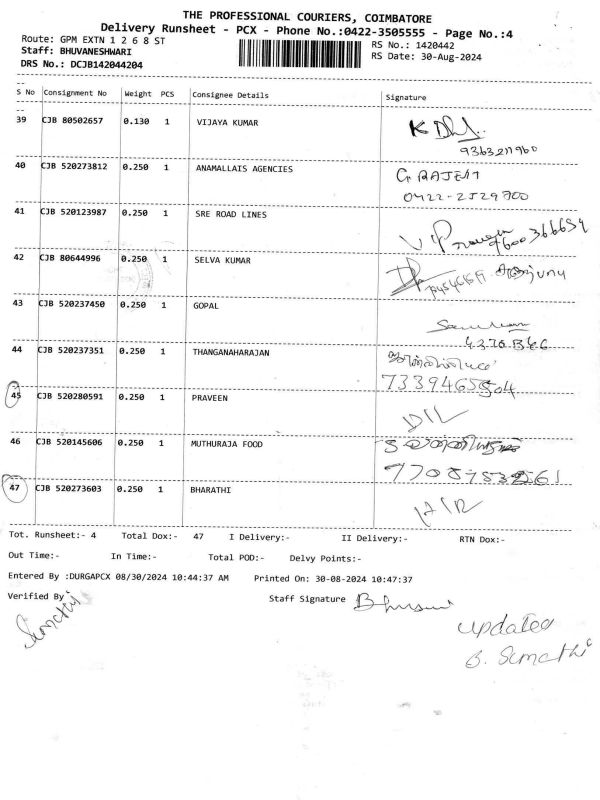 THE PROFESSIONAL COURIERS, COIMBATORE
Delivery Runsheet - PCX - Phone No.:0422-3505555 - Page No.:4
Route: GPM EXTN 1 2 6 8 ST
RS No.: 1420442
Staff: BHUVANESHWARI
RS Date: 30-Aug-2024
DRS No.: DCJB142044204
S No Consignment No Weight PCS Consignee Details Signature
39 CJB 80502657 0.130 1 VIJAYA KUMAR
40 CJB 520273812 0.250 1 ANAMALLAIS AGENCIES G RAJESH
0422-2529700
41 CJB 520123987 0.250 1 SRE ROAD LINES
42 CJB 80644996 0.250 1 SELVA KUMAR
43 CJB 520237450 0.250 1 GOPAL
44 CJB 520237351 0.250 1 THANGANAHARAJAN
45 CJB 520280591 0.250 1 PRAVEEN
D/L
46 CJB 520145606 0.250 1 MUTHURAJA FOOD
47 CJB 520273603 0.250 1 BHARATHI
Tot. Runsheet:- 4 Total Dox:- 47 I Delivery:- II Delivery:- RTN Dox:-
Out Time:- In Time:- Total POD:- Delvy Points:-
Entered By :DURGAPCX 08/30/2024 10:44:37 AM Printed On: 30-08-2024 10:47:37
Verified By Staff Signature
Sumathi
updated
B. Sumathi